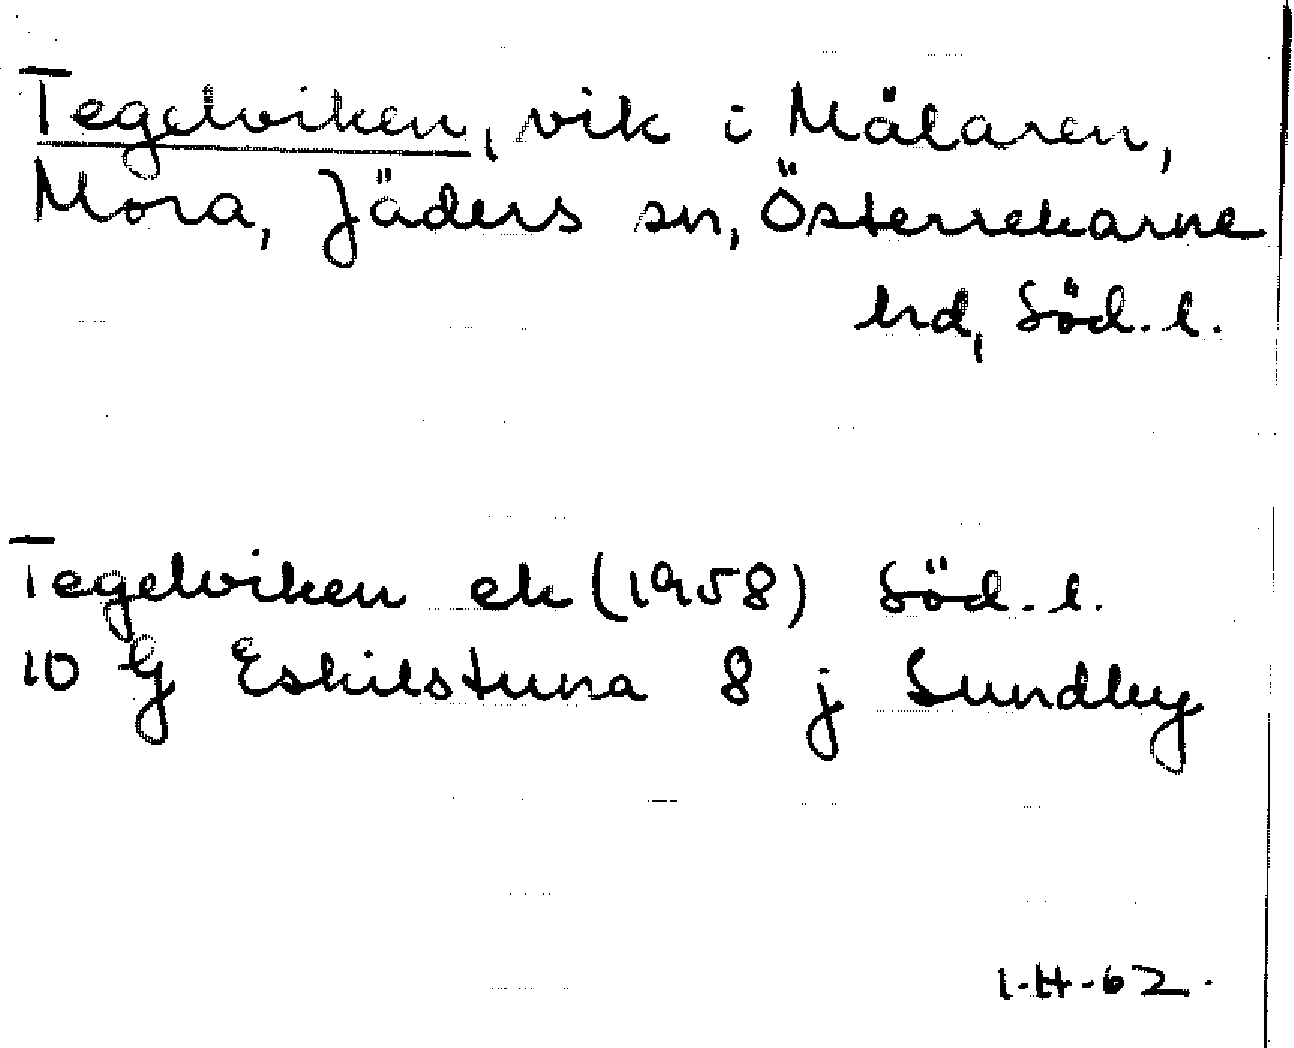 Tegelviken, vik i Mälaren,
Mora, Jäders sn, Österrekarne
hrd, Söd. l.
Tegelviken ek (1958) Söd. l.
10 G Eskilstuna 8 j Sundby
I.H-62.